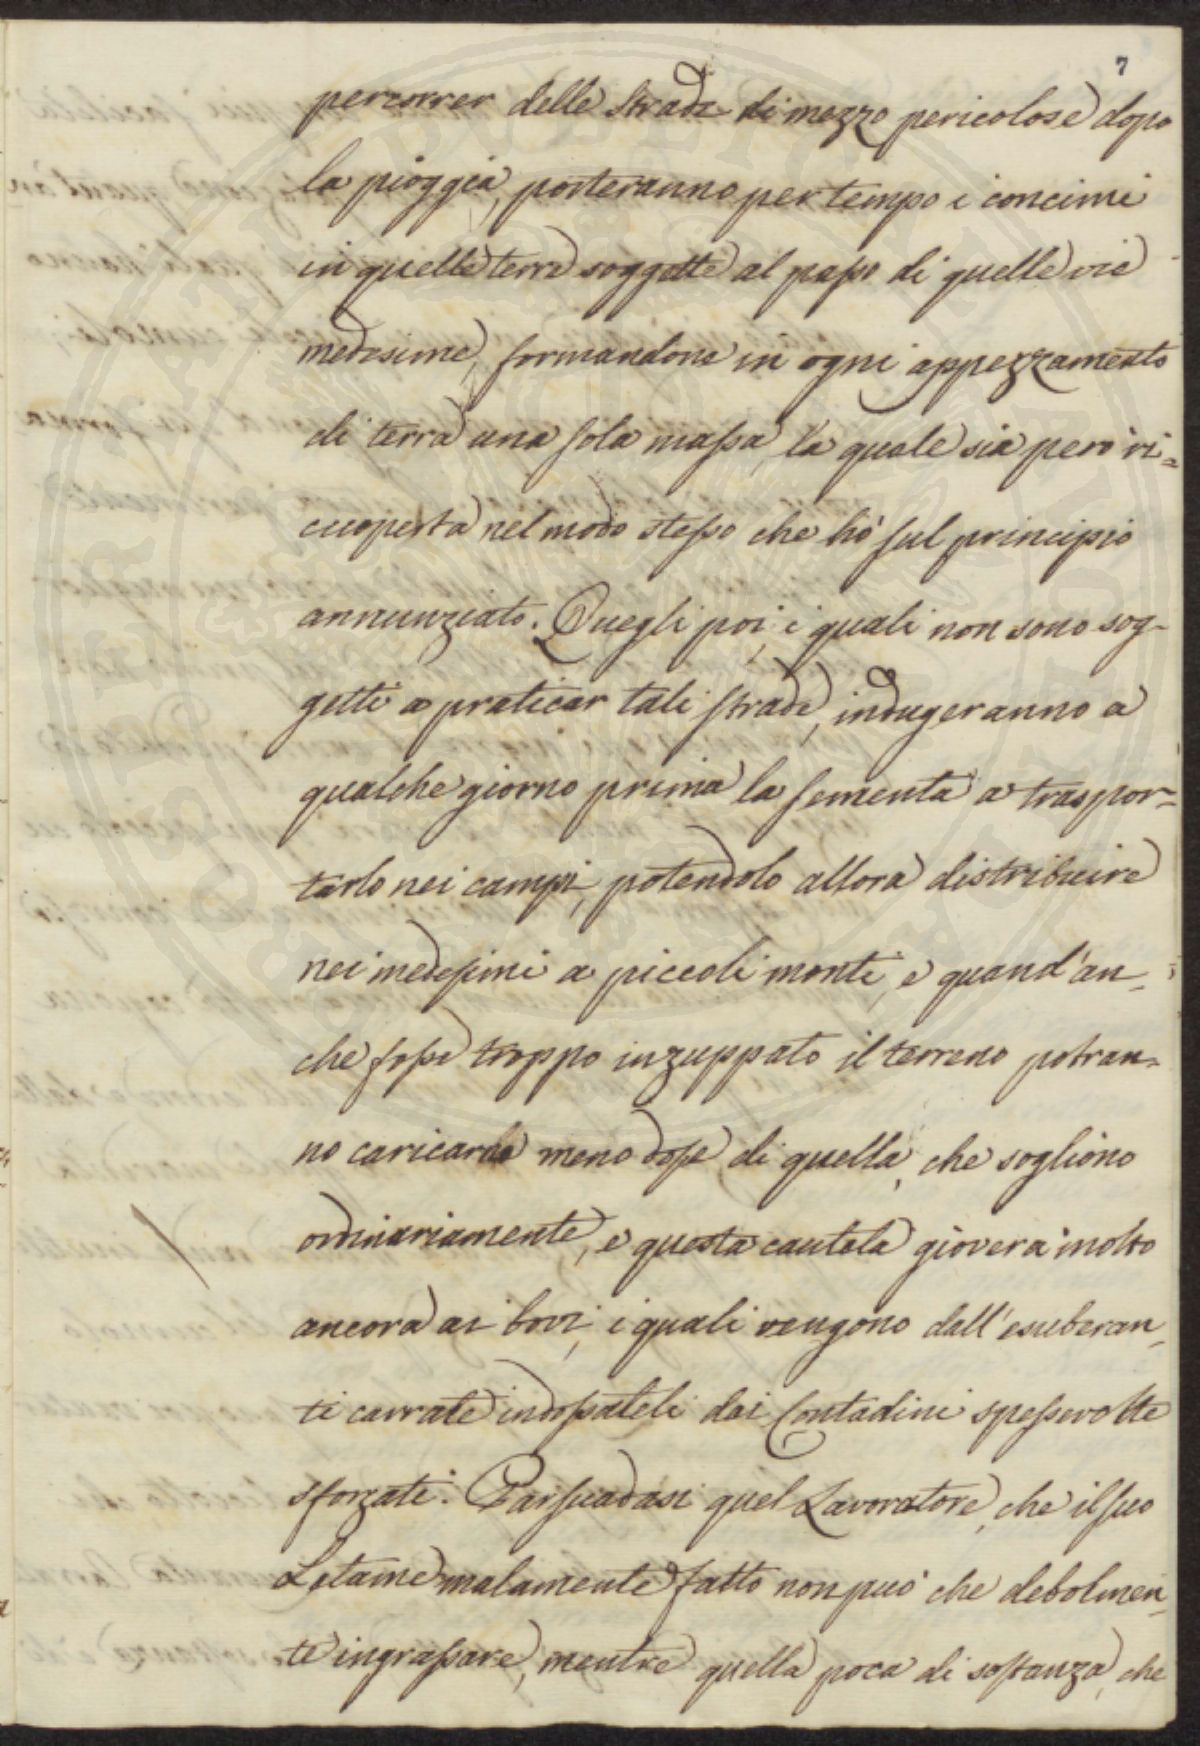 7
percorrer delle strade di mezzo pericolose dopo
la pioggia, porteranno per tempo i concimi
in quelle terre soggette al passo di quelle vie
medesime, formandone in ogni appezzamento
di terra una sola massa, la quale sia però ri=
cuoperta nel modo stesso che hò sul principio
annunziato. Quegli poi, i quali non sono sog-
getti a praticar tali strade, indugeranno a
qualche giorno prima la sementa a traspor-
tarlo nei campi, potendolo allora distribuire
nei medesimi a piccoli monti, e quand'an-
che fosse troppo inzuppato il terreno potran-
no caricarne meno dose di quella, che sogliono
ordinariamente, e questa cautela gioverà molto
ancora ai bovi, i quali vengono dall'esuberan-
ti carrate indossateli dai Contadini spessevolte
sforzati. Parsuadasi quel Lavoratore, che il suo
Letame malamente fatto non può che debolmen-
te ingrassare, mentre quella poca di sostanza, che